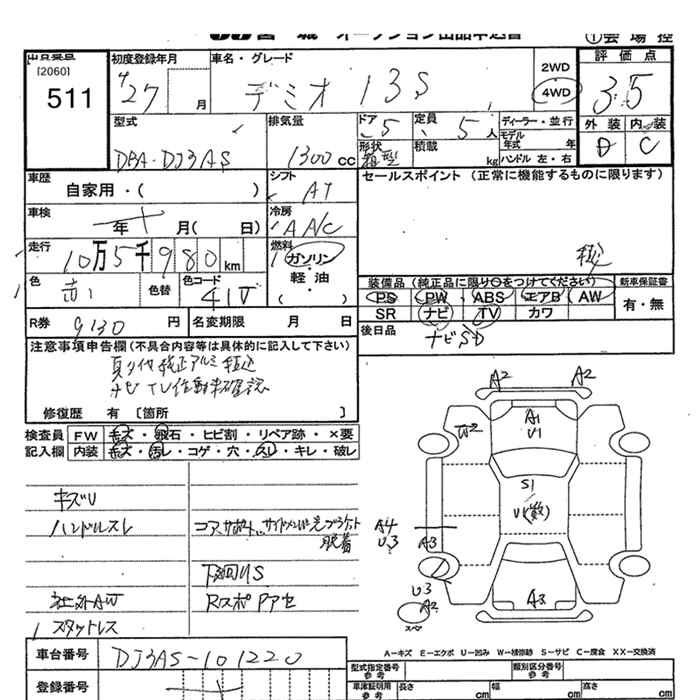 宮城 オークション出品申込書
①会場控
出品番号
[2060]
511
初度登録年月
27 月
車名・グレード
デミオ 13S
2WD
4WD
評価点
3.5
外装 内装
D C
型式
DBA-DJ3AS
排気量
1300cc
ドア
5
形状
箱型
定員
5人
積載
kg
ディーラー・並行
モデル年式 年
ハンドル 左・右
車歴
自家用・( )
シフト
AT
セールスポイント (正常に機能するものに限ります)
車検
年 月( 日)
冷房
AA/C
走行
10万5千980km
燃料
ガソリン
軽油
( ・ )
色
赤
色替
色コード
41V
装備品 (純正品に限り○をつけてください)
PS PW ABS エアB AW
SR ナビ TV カワ
新車保証書
有・無
R券
9130円
名変期限 月 日
後日品
ナビSD
注意事項申告欄(不具合内容等は具体的に記入して下さい)
ナビTV作動未確認
修復歴 有 [箇所 ]
検査員記入欄
FW キズ・飛石・ヒビ割・リペア跡・×要
内装 キズ・汚レ・コゲ・穴・スリ・キレ・破レ
キズU
ハンドルスレ
コアサポート、サイドメンバー先ブラケット
脱着
下廻りS
社外AW
RスポPアセ
スタットレス
A2 A2
A1
U1
W2
S1
U(数)
A4
U3
A3
U3
A2
スペア
A3
A-キズ E-エクボ U-凹み W-補修跡 S-サビ C-腐食 XX-交換済
車台番号
DJ3AS-101220
登録番号
型式指定番号
参考
類別区分番号
参考
車庫証明用
参考
長さ cm
幅 cm
高さ cm